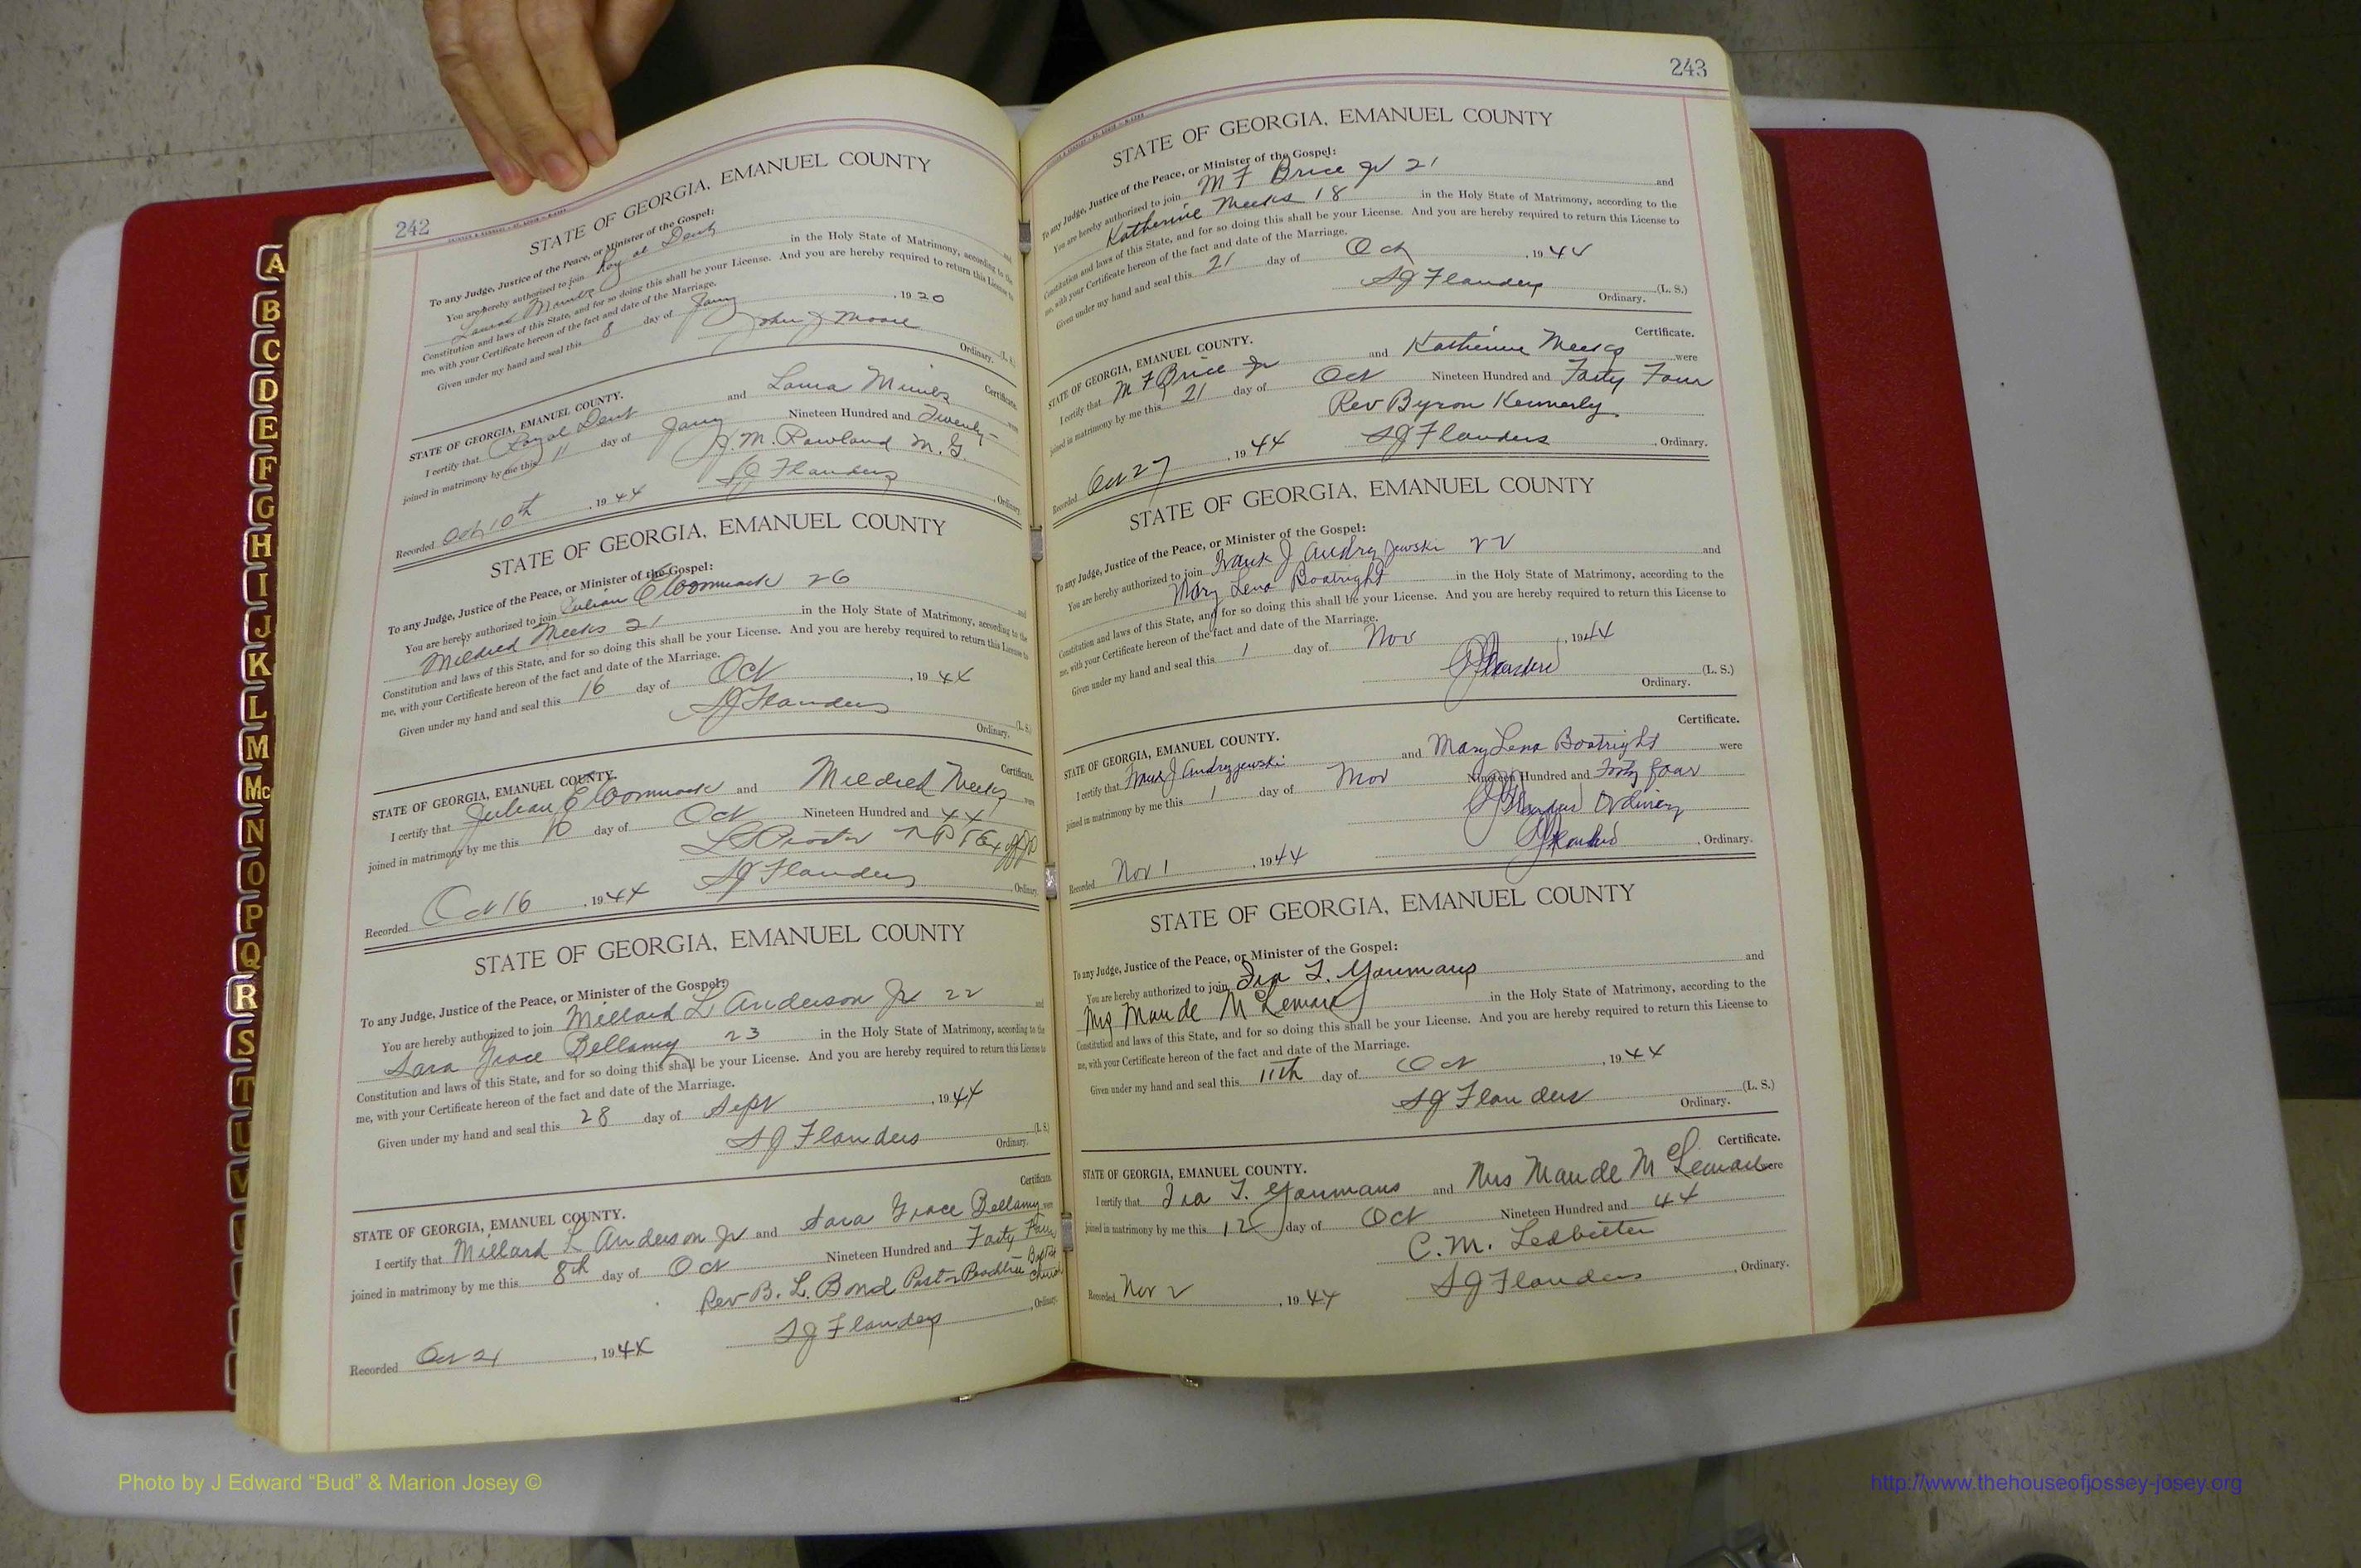 242
STATE OF GEORGIA, EMANUEL COUNTY
To any Judge, Justice of the Peace, or Minister of the Gospel:
You are hereby authorized to join Royal Dent and
in the Holy State of Matrimony, according to the
Constitution and laws of this State, and for so doing this shall be your License. And you are hereby required to return this License to
me, with your Certificate hereon of the fact and date of the Marriage.
Given under my hand and seal this 8 day of Jany , 1920
John J Moore (L. S.)
Ordinary.
Certificate.
STATE OF GEORGIA, EMANUEL COUNTY.
I certify that Royal Dent and Laura were
joined in matrimony by me this 11 day of Jany Nineteen Hundred and Twenty
J. M. Rowland M. G.
Recorded Oct 10th , 1944 SJ Flanders , Ordinary.
STATE OF GEORGIA, EMANUEL COUNTY
To any Judge, Justice of the Peace, or Minister of the Gospel:
You are hereby authorized to join Julian E Womack 26 and
Mildred Meeks 21 in the Holy State of Matrimony, according to the
Constitution and laws of this State, and for so doing this shall be your License. And you are hereby required to return this License to
me, with your Certificate hereon of the fact and date of the Marriage.
Given under my hand and seal this 16 day of Oct , 1944
SJ Flanders (L. S.)
Ordinary.
Certificate.
STATE OF GEORGIA, EMANUEL COUNTY.
I certify that Julian E Womack and Mildred Meeks were
joined in matrimony by me this day of Oct Nineteen Hundred and 44
Recorded Oct 16 , 1944 SJ Flanders , Ordinary.
STATE OF GEORGIA, EMANUEL COUNTY
To any Judge, Justice of the Peace, or Minister of the Gospel:
You are hereby authorized to join Millard L Anderson Jr 22 and
Sara Grace Bellamy 23 in the Holy State of Matrimony, according to the
Constitution and laws of this State, and for so doing this shall be your License. And you are hereby required to return this License to
me, with your Certificate hereon of the fact and date of the Marriage.
Given under my hand and seal this 28 day of Sept , 1944
SJ Flanders (L. S.)
Ordinary.
Certificate.
STATE OF GEORGIA, EMANUEL COUNTY.
I certify that Millard L Anderson Jr and Sara Grace Bellamy were
joined in matrimony by me this 8th day of Oct Nineteen Hundred and Forty Four
Rev B. L. Bond Church
SJ Flanders , Ordinary.
Recorded Oct 21 , 1944
243
STATE OF GEORGIA, EMANUEL COUNTY
To any Judge, Justice of the Peace, or Minister of the Gospel:
You are hereby authorized to join M F Brice Jr 21 and
Katherine Meeks 18 in the Holy State of Matrimony, according to the
Constitution and laws of this State, and for so doing this shall be your License. And you are hereby required to return this License to
me, with your Certificate hereon of the fact and date of the Marriage.
Given under my hand and seal this 21 day of Oct , 1944
SJ Flanders (L. S.)
Ordinary.
Certificate.
STATE OF GEORGIA, EMANUEL COUNTY.
I certify that M F Brice Jr and Katherine Meeks were
joined in matrimony by me this 21 day of Oct Nineteen Hundred and Forty Four
Rev Byron Kennerly
Recorded Oct 27 , 1944 SJ Flanders , Ordinary.
STATE OF GEORGIA, EMANUEL COUNTY
To any Judge, Justice of the Peace, or Minister of the Gospel:
You are hereby authorized to join Frank J Andrzyjewski 22 and
Mary Lena Boatright in the Holy State of Matrimony, according to the
Constitution and laws of this State, and for so doing this shall be your License. And you are hereby required to return this License to
me, with your Certificate hereon of the fact and date of the Marriage.
Given under my hand and seal this 1 day of Nov , 1944
SJ Flanders (L. S.)
Ordinary.
Certificate.
STATE OF GEORGIA, EMANUEL COUNTY.
I certify that Frank J Andrzyjewski and Mary Lena Boatright were
joined in matrimony by me this 1 day of Nov Nineteen Hundred and Forty four
SJ Flanders Ordinary
Recorded Nov 1 , 1944 SJ Flanders , Ordinary.
STATE OF GEORGIA, EMANUEL COUNTY
To any Judge, Justice of the Peace, or Minister of the Gospel:
You are hereby authorized to join Ira T. Youmans and
Mrs Maude McLemore in the Holy State of Matrimony, according to the
Constitution and laws of this State, and for so doing this shall be your License. And you are hereby required to return this License to
me, with your Certificate hereon of the fact and date of the Marriage.
Given under my hand and seal this 11th day of Oct , 1944
SJ Flanders (L. S.)
Ordinary.
Certificate.
STATE OF GEORGIA, EMANUEL COUNTY.
I certify that Ira T. Youmans and Mrs Maude McLemore were
joined in matrimony by me this 12 day of Oct Nineteen Hundred and 44
C. M. Ledbetter
Recorded Nov 2 , 1944 SJ Flanders , Ordinary.
A
B
C
D
E
F
G
H
I
J
K
L
M
Mc
N
O
P
Q
R
S
T
U
V
Photo by J Edward “Bud” & Marion Josey ©
http://www.thehouseofjossey-josey.org